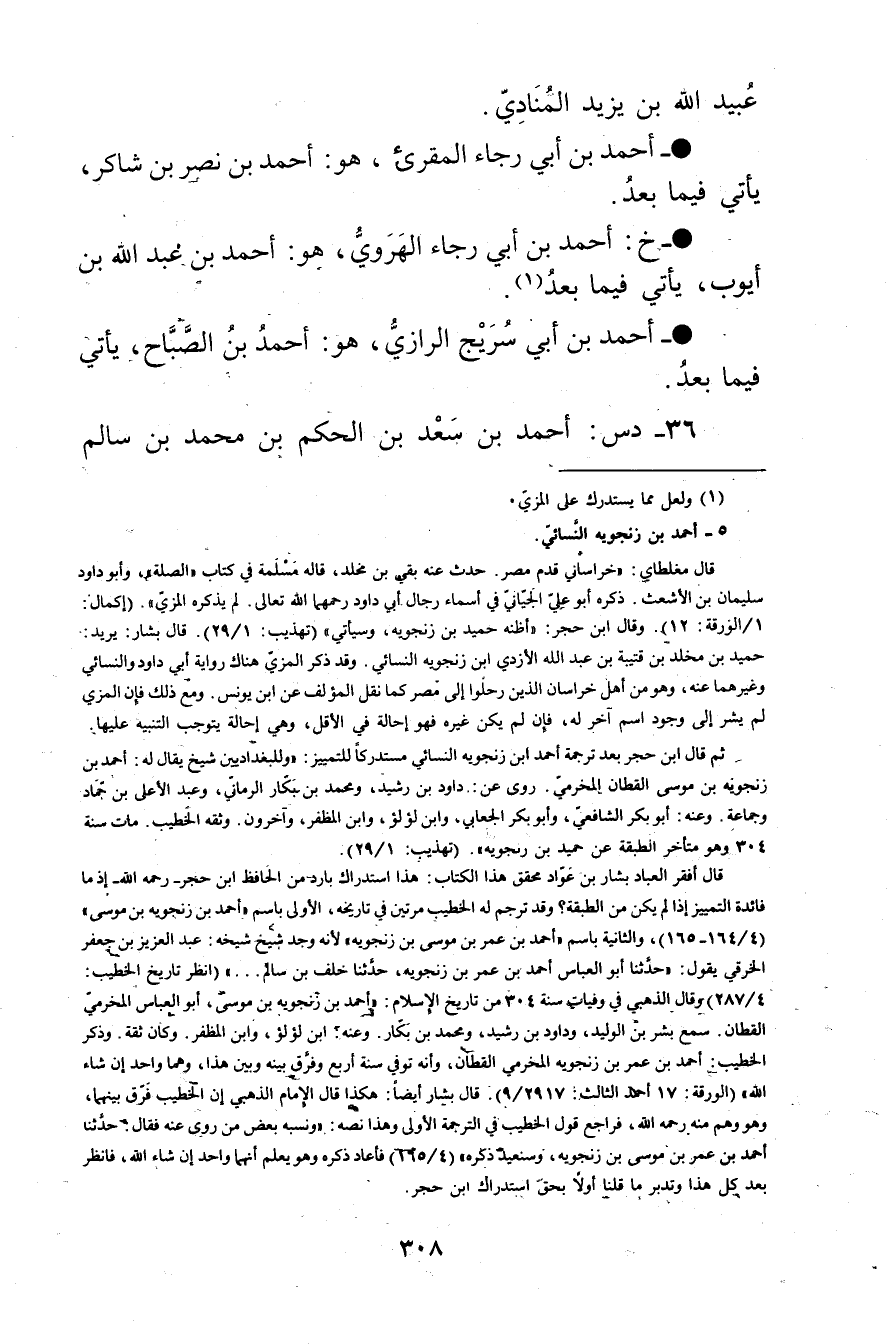 عُبيد الله بن يزيد المُنَادِيّ.
●ـ أحمد بن أبي رجاء المقرئ ، هو: أحمد بن نصر بن شاكر،
يأتي فيما بعدُ.
●ـ خ: أحمد بن أبي رجاء الهَرَويُّ، هو: أحمد بن عبد الله بن
أيوب، يأتي فيما بعدُ(١).
●ـ أحمد بن أبي سُرَيْج الرازيُّ، هو: أحمدُ بنُ الصَّبَّاح، يأتي
فيما بعدُ.
٣٦ـ دس: أحمد بن سَعْد بن الحكم بن محمد بن سالم
(١) ولعل مما يستدرك على المزيّ.
٥ ـ أحمد بن زنجويه النَّسائيّ.
قال مغلطاي: «خراساني قدم مصر. حدث عنه بقي بن مخلد، قاله مَسْلَمة في كتاب «الصلة»، وأبو داود
سليمان بن الأشعث. ذكره أبو عليّ الجَيَّانيّ في أسماء رجال أبي داود رحمهما الله تعالى. لم يذكره المزيّ». (إكمال:
١/الورقة: ١٢). وقال ابن حجر: «أظنه حميد بن زنجويه، وسيأتي» (تهذيب: ٢٩/١). قال بشار: يريد:
حميد بن مخلد بن قتيبة بن عبد الله الأزدي ابن زنجويه النسائي. وقد ذكر المزيّ هناك رواية أبي داود والنسائي
وغيرهما عنه، وهو من أهل خراسان الذين رحلوا إلى مصر كما نقل المؤلف عن ابن يونس. ومع ذلك فإن المزي
لم يشر إلى وجود اسم آخر له، فإن لم يكن غيره فهو إحالة في الأقل، وهي إحالة يتوجب التنبيه عليها.
ثم قال ابن حجر بعد ترجمة أحمد ابن زنجويه النسائي مستدركاً للتمييز: «وللبغداديين شيخ يقال له: أحمد بن
زنجويه بن موسى القطان المخرميّ. روى عن: داود بن رشيد، ومحمد بن بَكّار الرماني، وعبد الأعلى بن حَمّاد
وجماعة. وعنه: أبو بكر الشافعيّ، وأبو بكر الجعابي، وابن لؤلؤ، وابن المظفر، وآخرون. وثقه الخطيب. مات سنة
٣٠٤ وهو متأخر الطبقة عن حميد بن زنجويه». (تهذيب: ٢٩/١).
قال أفقر العباد بشار بن عَوّاد محقق هذا الكتاب: هذا استدراك بارد من الحافظ ابن حجر ـ رحمه الله ـ إذ ما
فائدة التمييز إذا لم يكن من الطبقة؟ وقد ترجم له الخطيب مرتين في تاريخه، الأولى باسم «أحمد بن زنجويه بن موسى»
(١٦٤/٤ـ١٦٥)، والثانية باسم «أحمد بن عمر بن موسى بن زنجويه» لأنه وجد شيخ شيخه: عبد العزيز بن جعفر
الخرقي يقول: «حدَّثنا أبو العباس أحمد بن عمر بن زنجويه، حدَّثنا خلف بن سالم...» (انظر تاريخ الخطيب:
٢٨٧/٤) وقال الذهبي في وفيات سنة ٣٠٤ من تاريخ الإسلام: «أحمد بن زنجويه بن موسى، أبو العباس المخرميّ
القطان. سمع بشر بن الوليد، وداود بن رشيد، ومحمد بن بكّار. وعنه؟ ابن لؤلؤ، وابن المظفر. وكان ثقة. وذكر
الخطيب: أحمد بن عمر بن زنجويه المخرمي القطان، وأنه توفي سنة أربع وفرَّق بينه وبين هذا، وهما واحد إن شاء
الله» (الورقة: ١٧ أحمد الثالث: ٩/٢٩١٧). قال بشار أيضاً: هكذا قال الإمام الذهبي إن الخطيب فَرّق بينهما،
وهو وهم منه رحمه الله، فراجع قول الخطيب في الترجمة الأولى وهذا نصه: «ونسبه بعض من روى عنه فقال: حدَّثنا
أحمد بن عمر بن موسى بن زنجويه، وسنعيد ذكره» فأعاد ذكره وهو يعلم أنهما واحد إن شاء الله، فانظر
بعد كل هذا وتدبر ما قلنا أولاً بحقّ استدراك ابن حجر.
٣٠٨